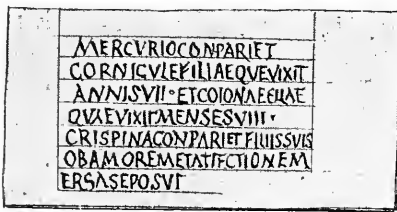 MERCVRIOCONPARIET
CORNICVLEFILIAEQVEVIXIT
ANNISVII·ETCOIONAEEILIAE
QVAEVIXITMENSESVIII·
CRISPINACONPARIETFILIISSVIS
OBAMOREMETATFECTIONEM
ERGASEPOSVIT